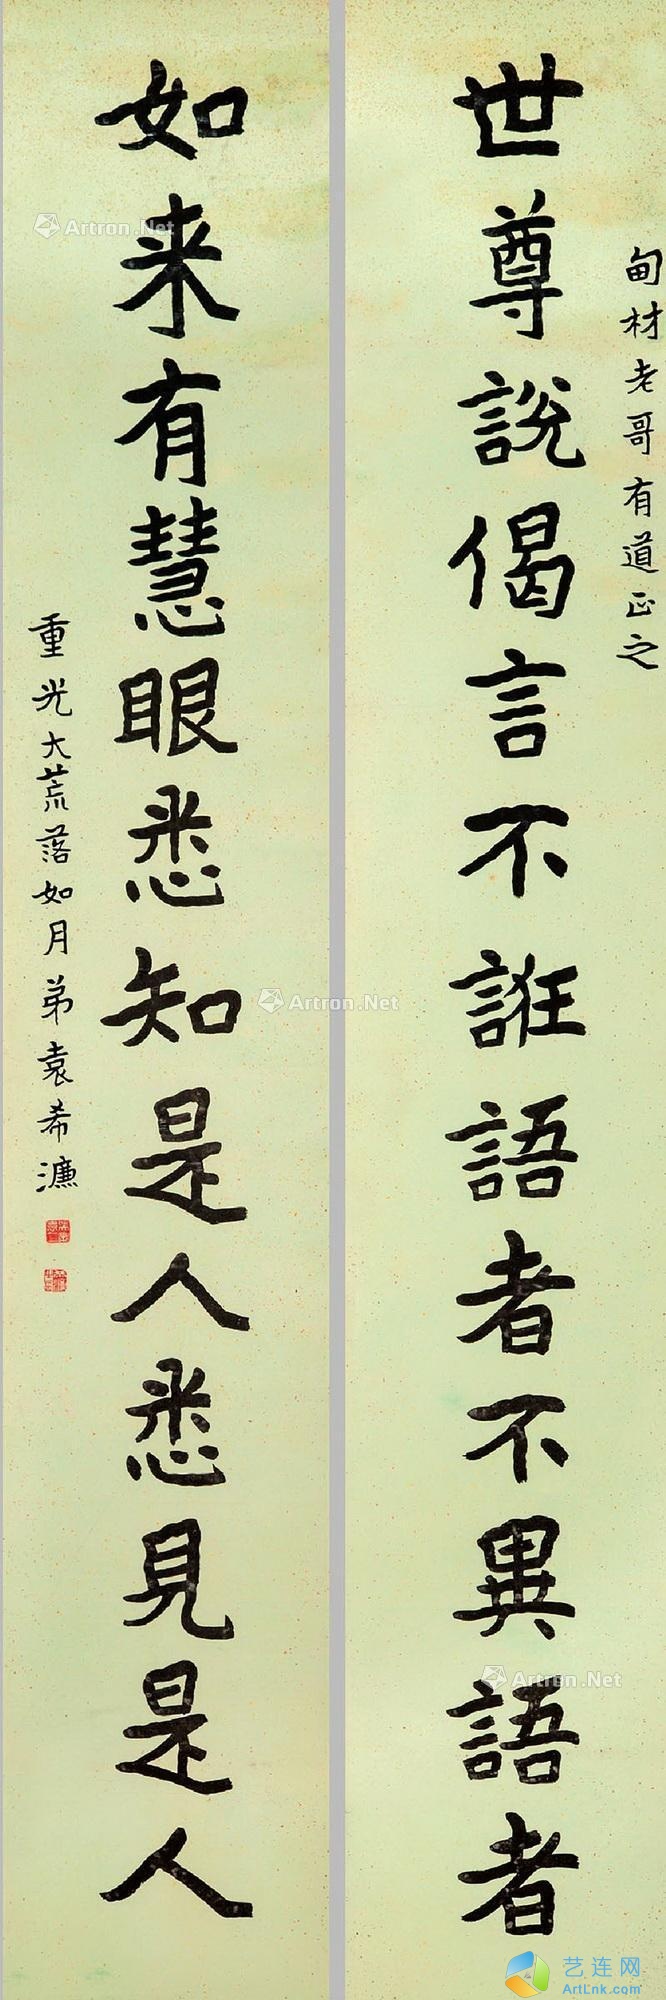 甸材老哥有道正之
世尊說偈言不誑語者不異語者
如来有慧眼悉知是人悉見是人
重光大荒落如月弟袁希濂
Artron.Net
Artron.Net
Artron.Net
艺连网
ArtLnk.com